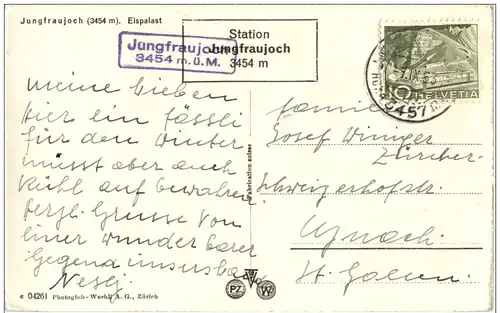 Jungfraujoch (3454 m). Eispalast
Station
Jungfraujoch
3454 m
Jungfraujoch
3454 m.ü.M.
10 HELVETIA
meine lieben
hier ein fässli
für den Winter
müsst aber auch
kühl auf bewahren
herzl. Grüsse Von
einer wunderbarer
Gegend
familie
Josef
Zürcher-
Schweizerhofstr.
Uznach
St. Gallen.
Fabrication suisse
PZ W
c 04261 Photoglob-Wehrli A. G., Zürich